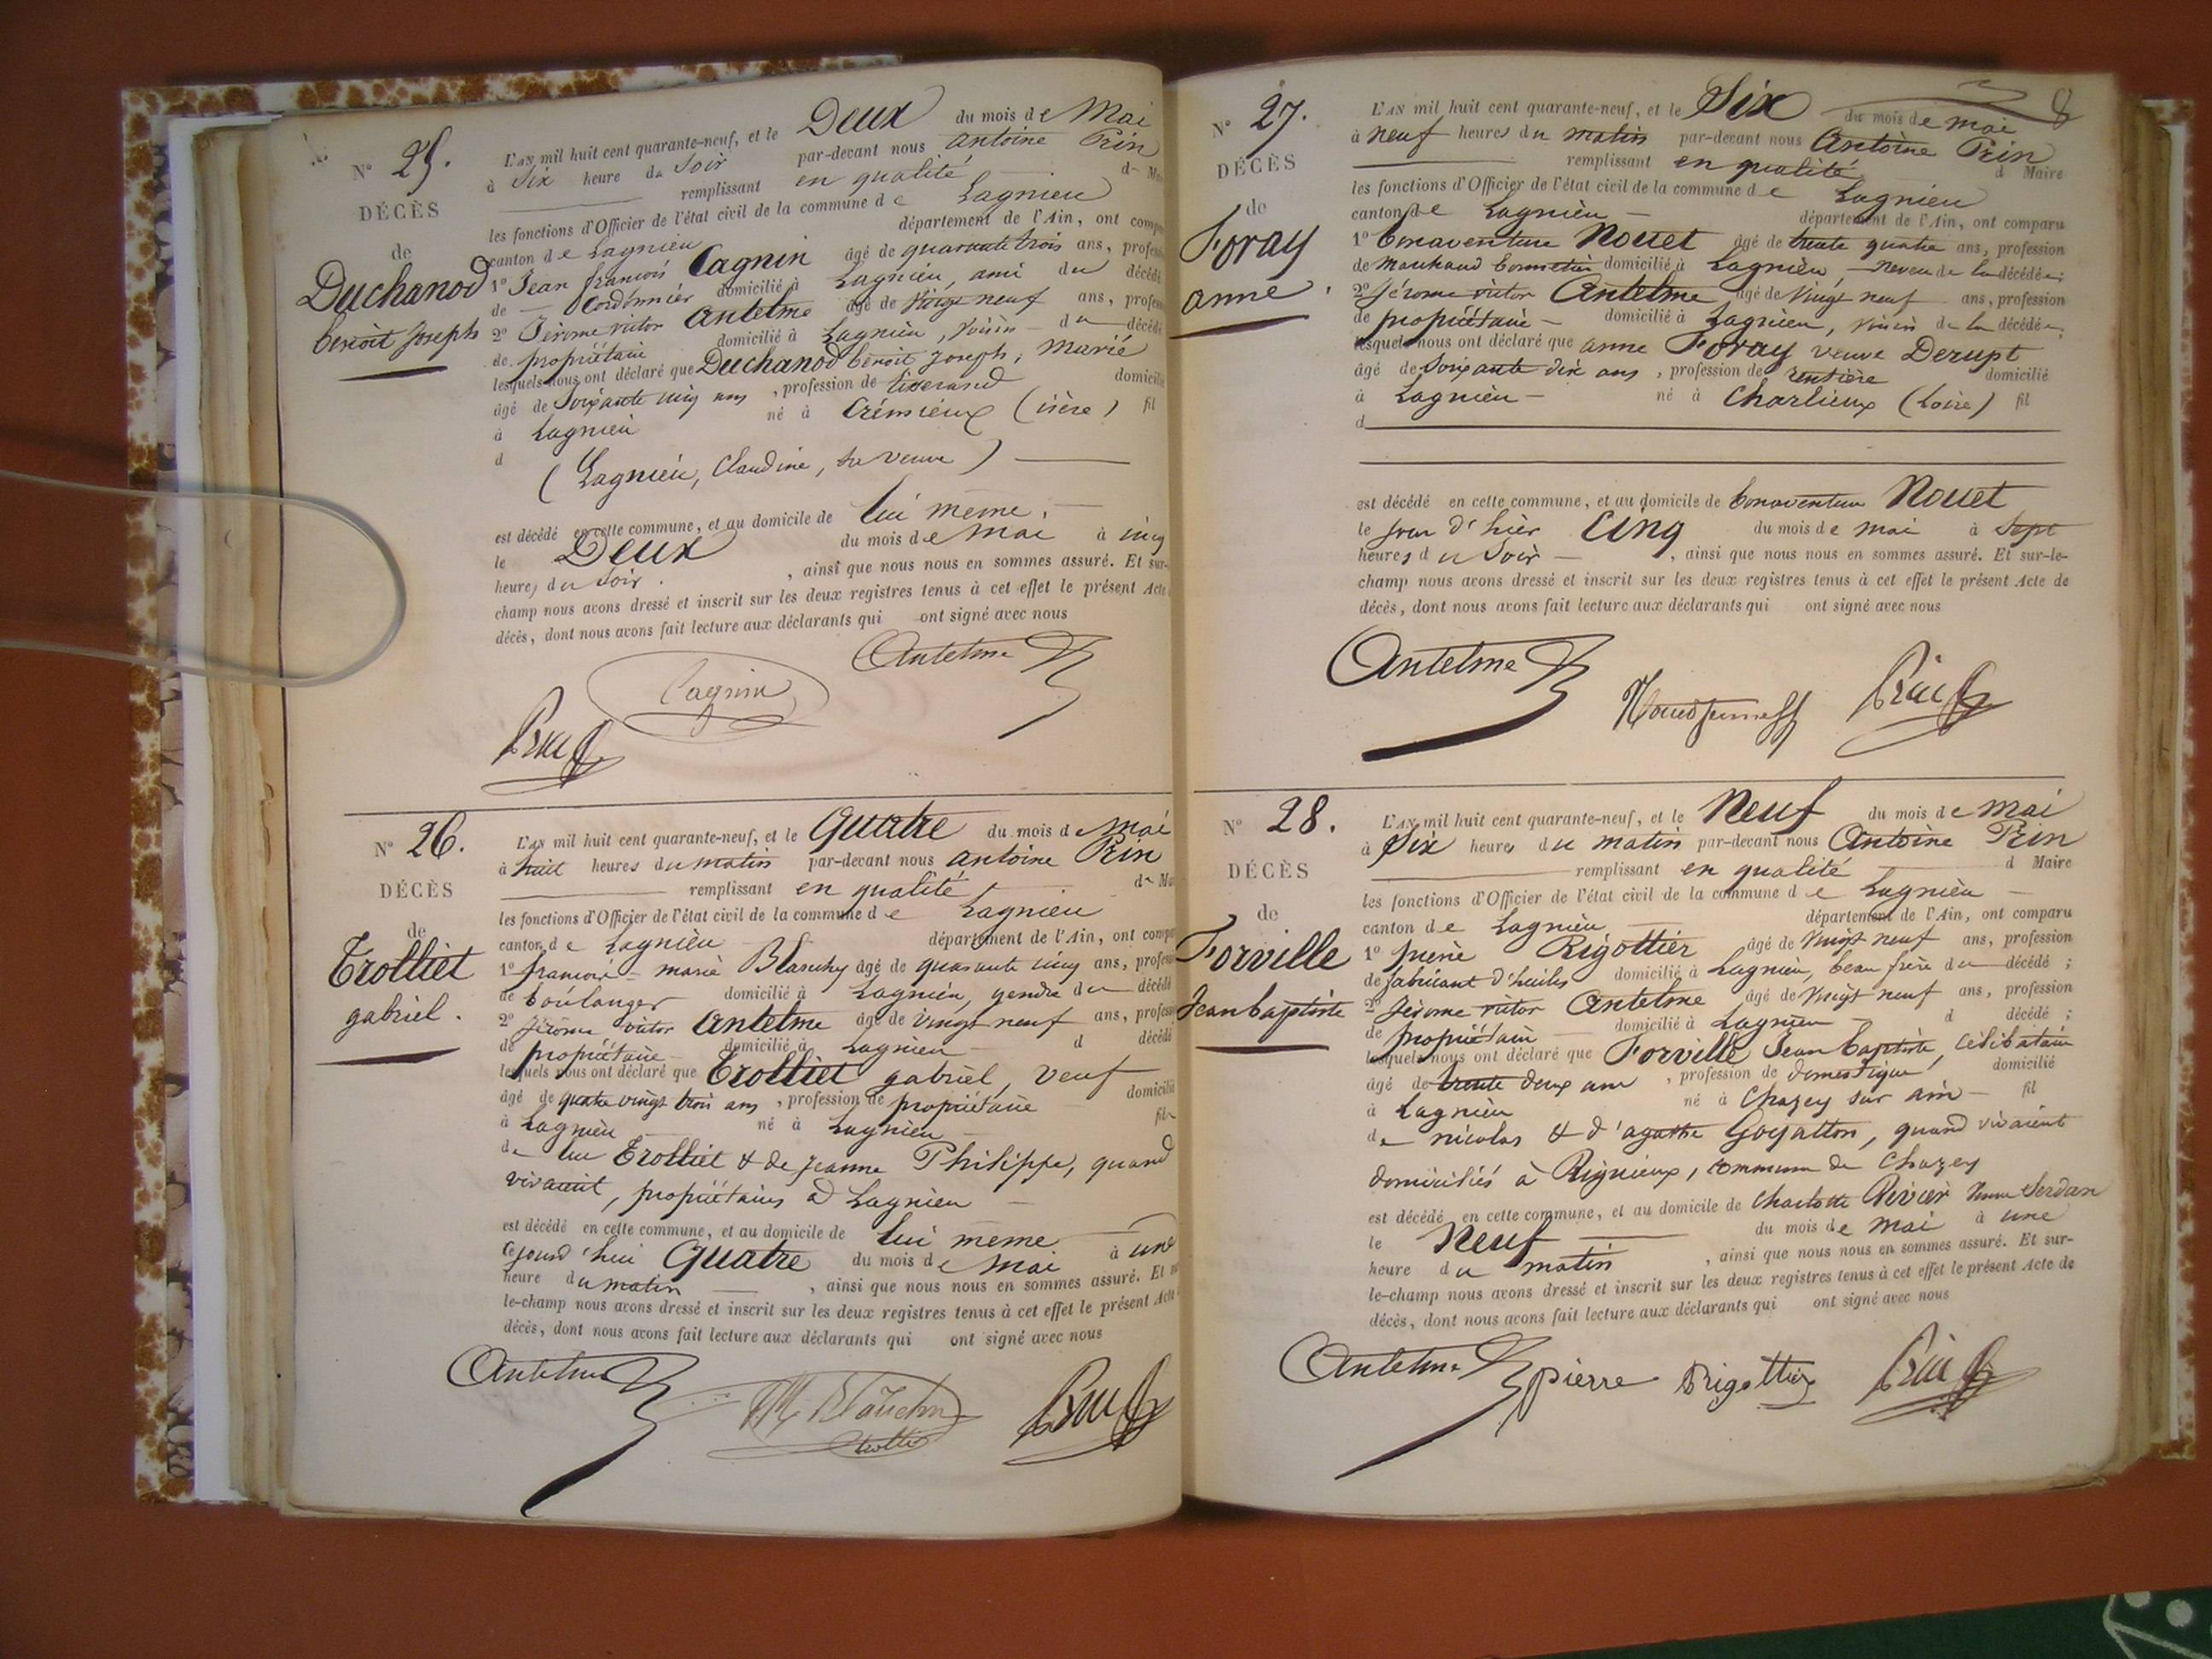 N° 25.
DÉCÈS
de
Duchanod
benoit Joseph
L'AN mil huit cent quarante-neuf, et le Deux du mois de Mai
à Six heure du Soir par-devant nous antoine Prin
remplissant en qualité de
les fonctions d'Officier de l'état civil de la commune de Lagnieu
canton de Lagnieu département de l'Ain, ont
1° Jean françois Cagnin âgé de quarante trois ans,
de Cordonnier domicilié à Lagnieu, ami du décédé
2° Jérome victor Antelme âgé de Vingt neuf ans,
de propriétaire domicilié à Lagnieu, voisin du décédé
lesquels nous ont déclaré que Duchanod benoit Joseph, Marié
âgé de Soixante cinq ans, profession de tisserand domicilié
à Lagnieu né à Crémieux (isère) fil
d (Lagnieu, Claudine, sa veuve)
est décédé en cette commune, et au domicile de lui même,
le Deux du mois de Mai à cinq
heures du Soir, ainsi que nous nous en sommes assuré. Et sur-
champ nous avons dressé et inscrit sur les deux registres tenus à cet effet le présent Acte
décès, dont nous avons fait lecture aux déclarants qui ont signé avec nous
Antelme
Cagnin
Prin
N° 26.
DÉCÈS
de
Trolliet
gabriel.
L'AN mil huit cent quarante-neuf, et le Quatre du mois de Mai
à huit heures du matin par-devant nous antoine Prin
remplissant en qualité de
les fonctions d'Officier de l'état civil de la commune de Lagnieu
canton de Lagnieu département de l'Ain, ont
1° françois-marie Blanchy âgé de quarante cinq ans,
de boulanger domicilié à Lagnieu, gendre du décédé
2° Jérôme victor Antelme âgé de Vingt neuf ans,
de propriétaire domicilié à Lagnieu d décédé
lesquels nous ont déclaré que Trolliet gabriel, veuf
âgé de quatre vingt trois ans, profession de propriétaire domicilié
à Lagnieu né à Lagnieu fils
de luc Trolliet & de Jeanne Philippe, quand
vivaient, propriétaires à Lagnieu
est décédé en cette commune, et au domicile de lui même
cejourd'hui Quatre du mois de Mai à une
heure du matin, ainsi que nous nous en sommes assuré. Et
le-champ nous avons dressé et inscrit sur les deux registres tenus à cet effet le présent Acte
décès, dont nous avons fait lecture aux déclarants qui ont signé avec nous
Antelme
Prin
8
N° 27.
DÉCÈS
de
Foray
anne.
L'AN mil huit cent quarante-neuf, et le Six du mois de mai
à neuf heures du matin par-devant nous Antoine Prin
remplissant en qualité d Maire
les fonctions d'Officier de l'état civil de la commune de Lagnieu
canton de Lagnieu département de l'Ain, ont comparu
1° bonaventure Nouet âgé de trente quatre ans, profession
de Marchand bonnetier domicilié à Lagnieu, neveu de la décédée;
2° Jérome victor Antelme âgé de Vingt neuf ans, profession
de propriétaire domicilié à Lagnieu, voisin de la décédée;
lesquels nous ont déclaré que anne Foray veuve Derupt
âgé de soixante dix ans, profession de rentière domicilié
à Lagnieu né à Charlieux (Loire) fil
d
est décédé en cette commune, et au domicile de bonaventure Nouet
le jour d'hier Cinq du mois de mai à Sept
heures du Soir, ainsi que nous nous en sommes assuré. Et sur-le-
champ nous avons dressé et inscrit sur les deux registres tenus à cet effet le présent Acte de
décès, dont nous avons fait lecture aux déclarants qui ont signé avec nous
Antelme
Prin
N° 28.
DÉCÈS
de
Forville
Jean baptiste
L'AN mil huit cent quarante-neuf, et le Neuf du mois de Mai
à Six heures du matin par-devant nous Antoine Prin
remplissant en qualité d Maire
les fonctions d'Officier de l'état civil de la commune de Lagnieu
canton de Lagnieu département de l'Ain, ont comparu
1° pierre Rigottier âgé de Vingt neuf ans, profession
de fabricant d'huiles domicilié à Lagnieu, beau frère du décédé;
2° Jérome victor Antelme âgé de Vingt neuf ans, profession
de propriétaire domicilié à Lagnieu d décédé;
lesquels nous ont déclaré que Forville Jean baptiste, célibataire
âgé de trente deux ans, profession de domestique domicilié
à Lagnieu né à Chazey sur ain fil
de nicolas & d'agathe Goyatton, quand vivaient
domiciliés à Rignieux, commune de Chazey
est décédé en cette commune, et au domicile de Charlotte Rivier Veuve Serdan
le Neuf du mois de mai à une
heure du matin, ainsi que nous nous en sommes assuré. Et sur-
le-champ nous avons dressé et inscrit sur les deux registres tenus à cet effet le présent Acte de
décès, dont nous avons fait lecture aux déclarants qui ont signé avec nous
Antelme
pierre Rigottier
Prin